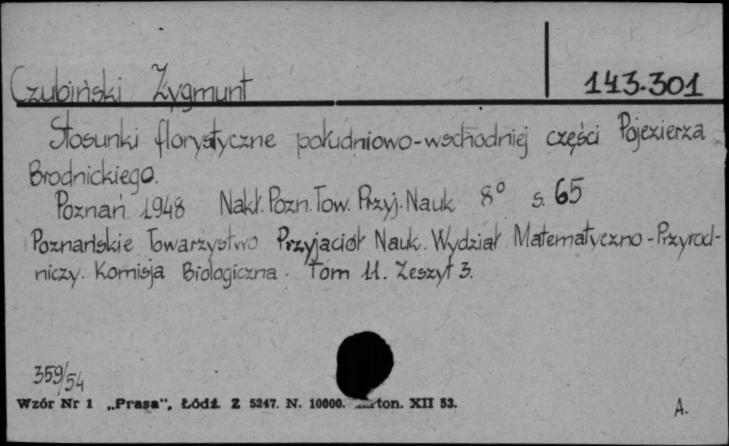 Czubiński Zygmunt
143.301
Stosunki florystyczne południowo-wschodniej części Pojezierza
Brodnickiego.
Poznań 1948 Nakł. Pozn. Tow. Przyj. Nauk 8° s. 65
Poznańskie Towarzystwo Przyjaciół Nauk. Wydział Matematyczno-Przyrod-
niczy. Komisja Biologiczna. Tom 11. Zeszyt 3.
359/54
Wzór Nr 1 „Prasa", Łódź. Z 5247. N. 10000. ton. XII 53.
A.